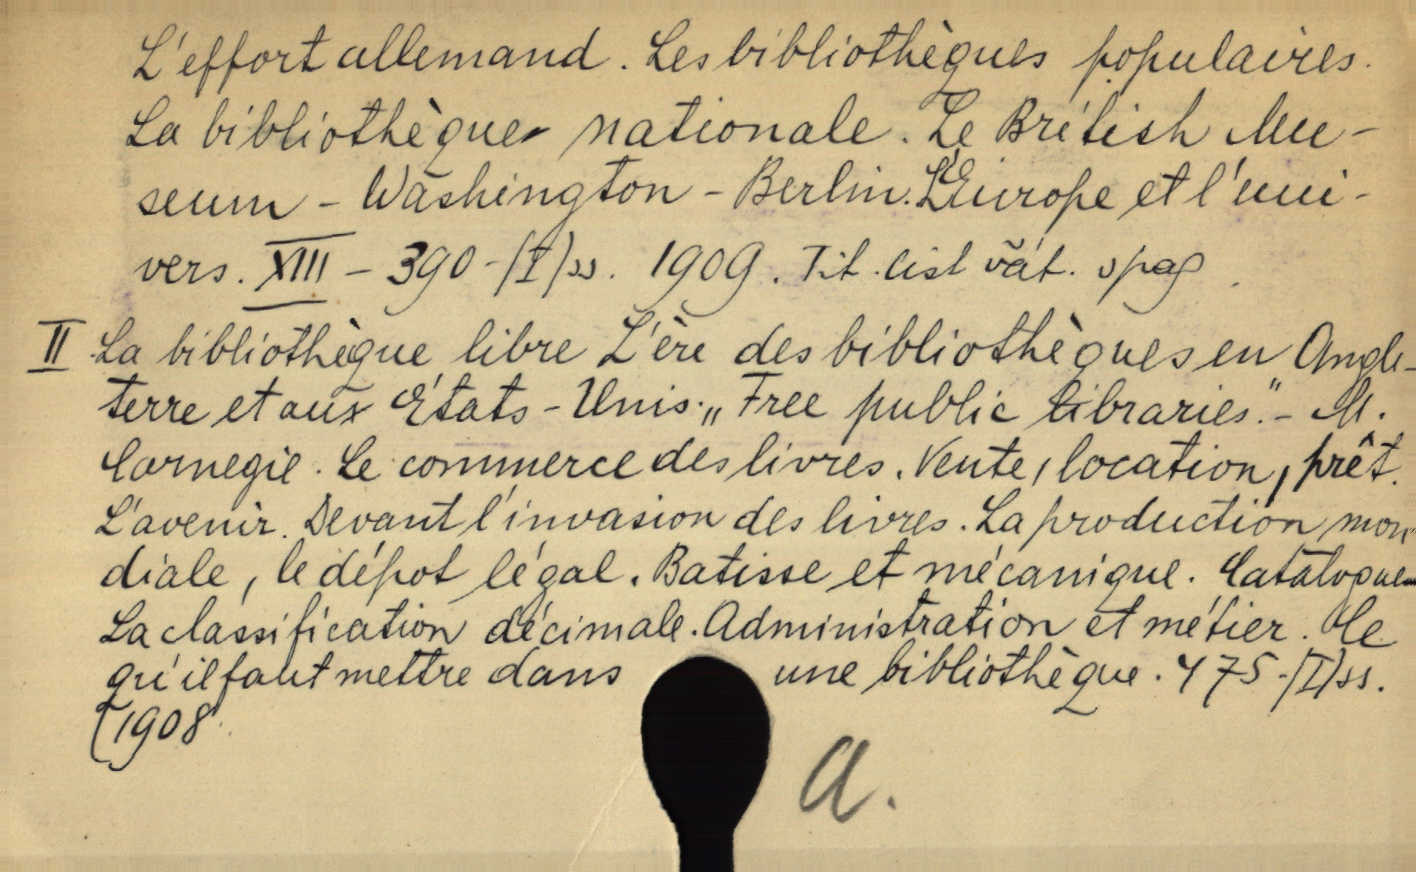 L'effort allemand. Les bibliothèques populaires.
La bibliothèque nationale. Le British Mu-
seum - Washington - Berlin. L'Europe et l'uni-
vers. XIII - 390 -(I) ss. 1909. Tit. list vät. spag.
II La bibliothèque libre L'ère des bibliothèques en Angle-
terre et aux États-Unis. „Free public libraries." - M.
Carnegie. Le commerce des livres. Vente, location, prêt.
L'avenir. Devant l'invasion des livres. La production mon-
diale, le dépot légal. Batisse et mécanique. Catalogue
La classification décimale. Administration et métier. Ce
qu'il faut mettre dans une bibliothèque. 475 -(I) ss.
(1908.
a.